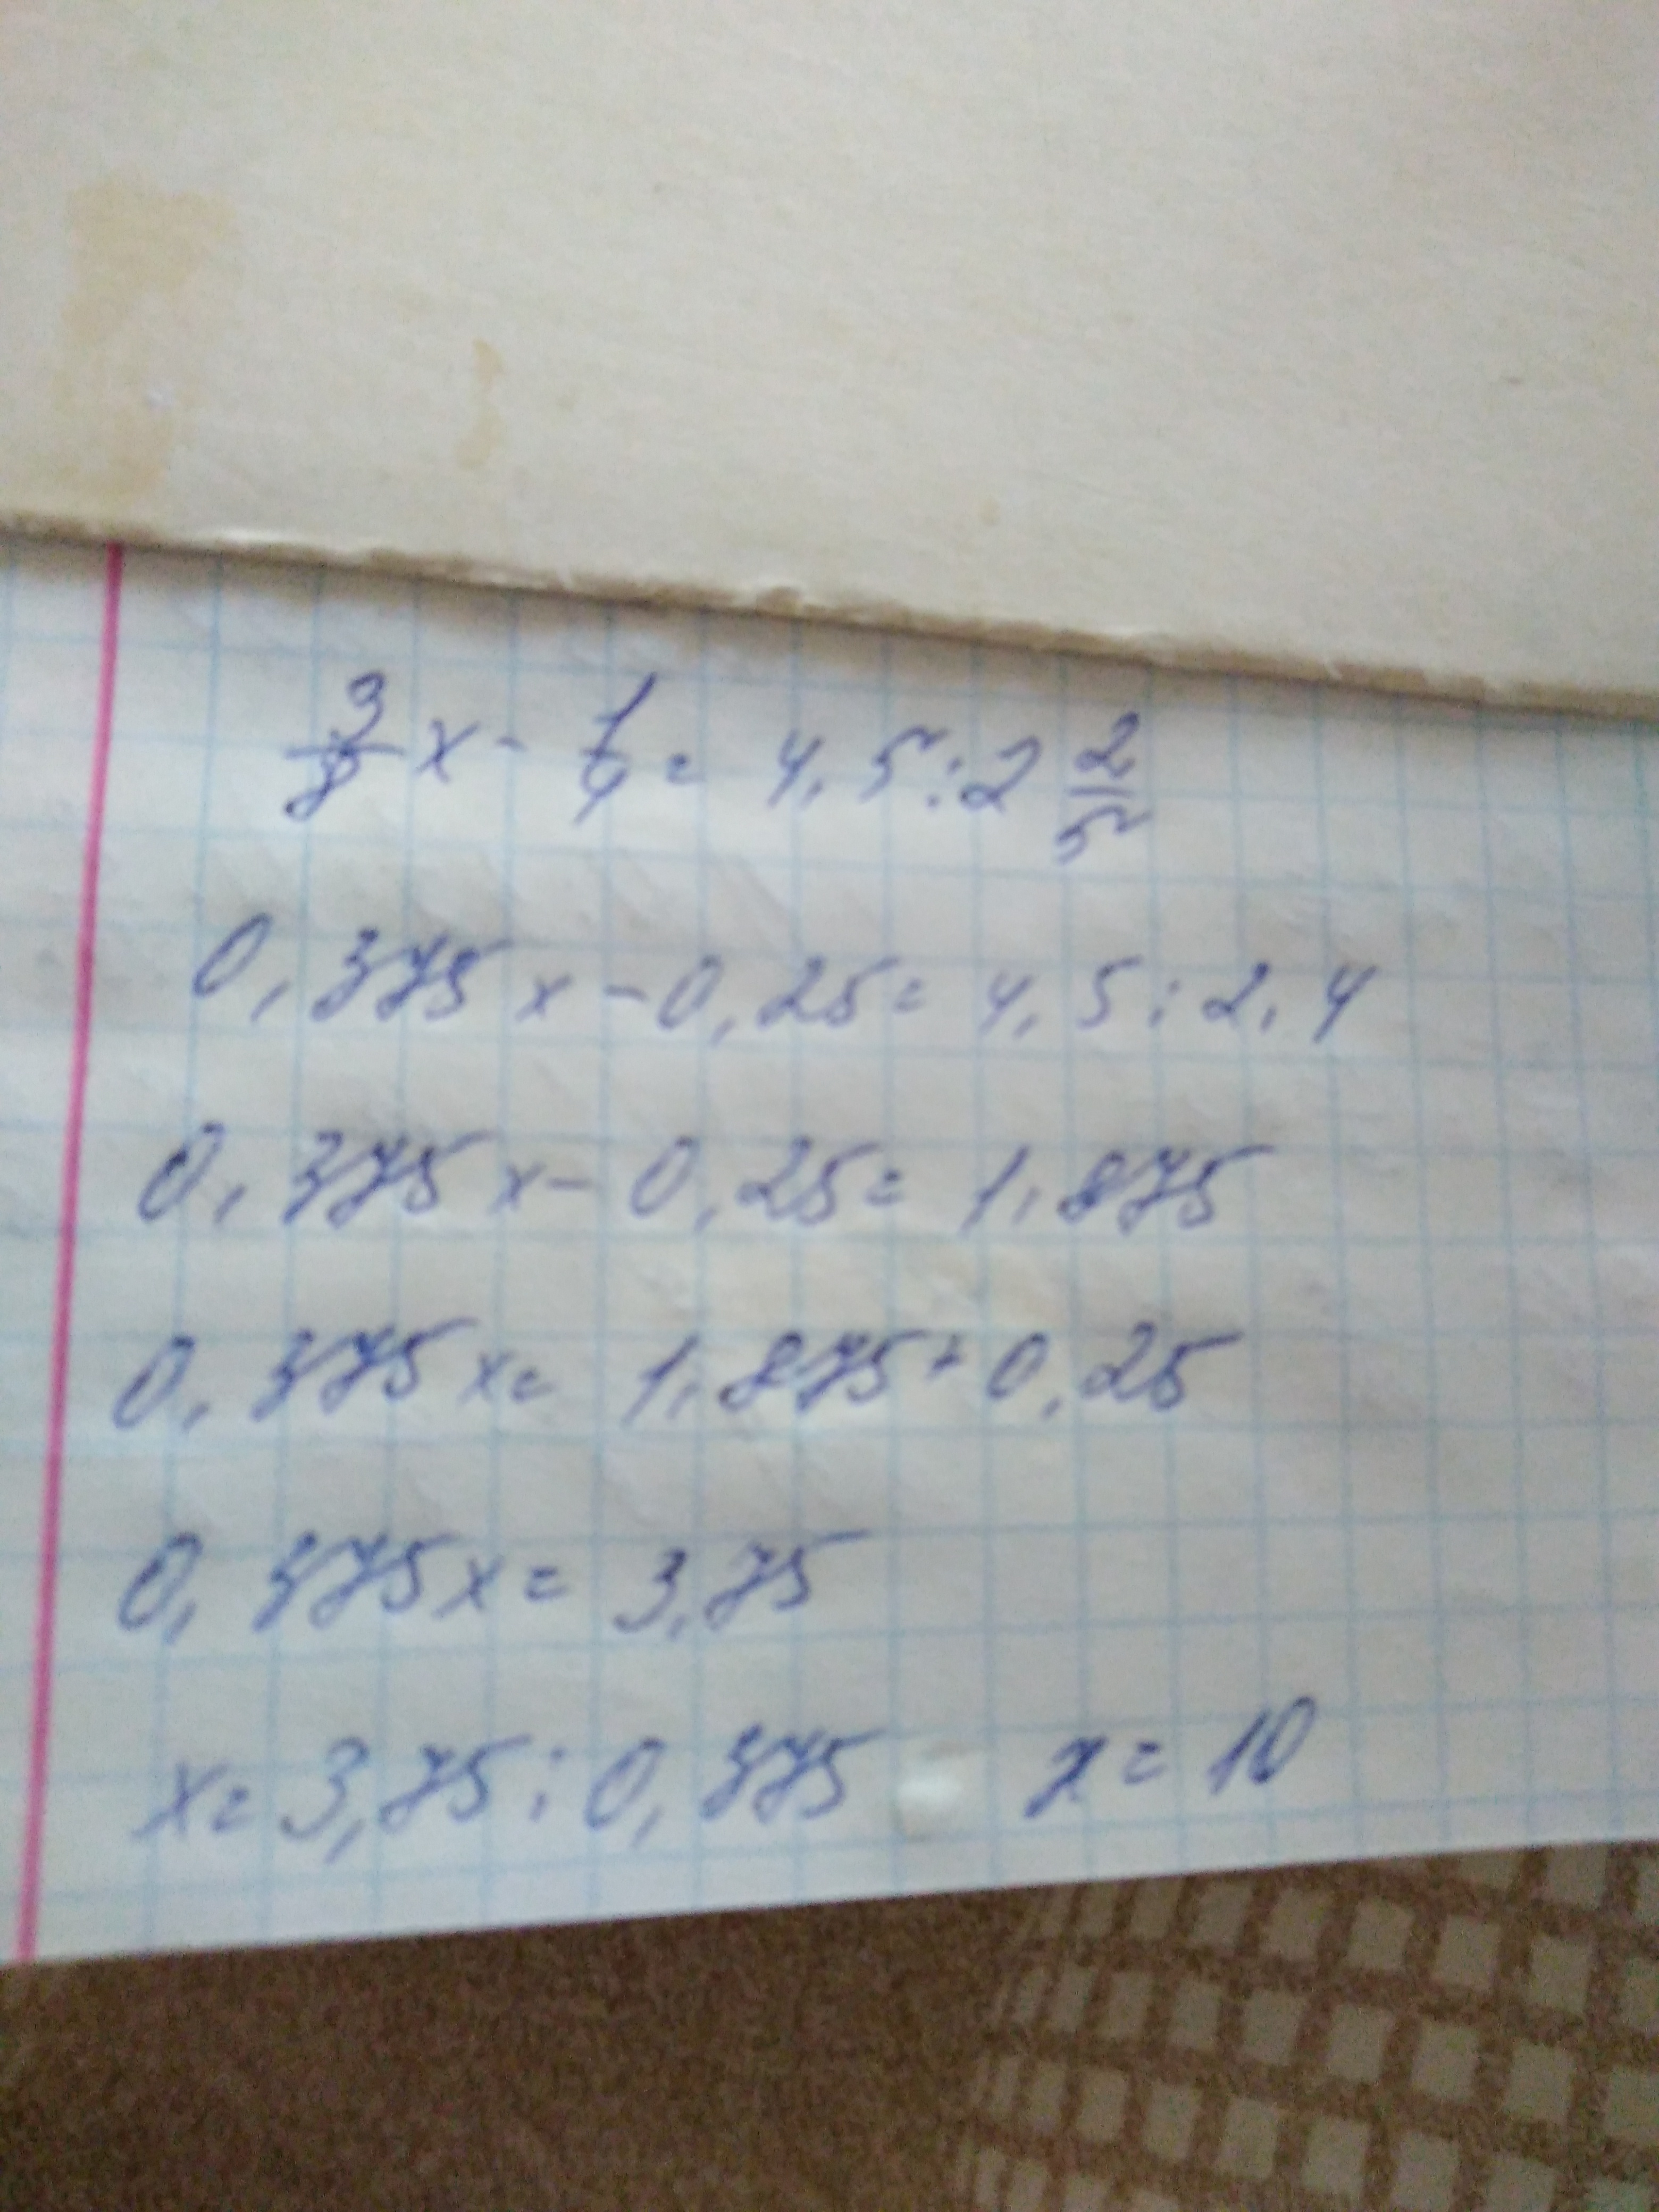 3/8 x - 1/4 = 4,5 : 2 2/5
0,375x - 0,25 = 4,5 : 2,4
0,375x - 0,25 = 1,875
0,375x = 1,875 + 0,25
0,375x = 3,75
x = 3,75 : 0,375 x = 10